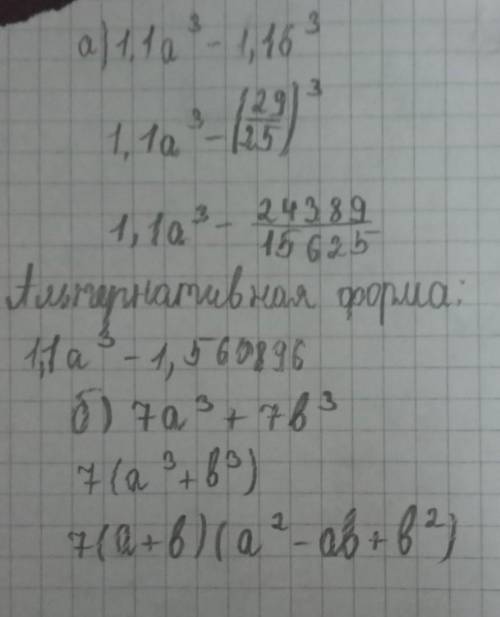 а) 1,1a³ - 1,16³
1,1a³ - (29/25)³
1,1a³ - 24389/15625
Альтернативная форма:
1,1a³ - 1,560896
б) 7a³ + 7b³
7(a³+b³)
7(a+b)(a² - ab + b²)